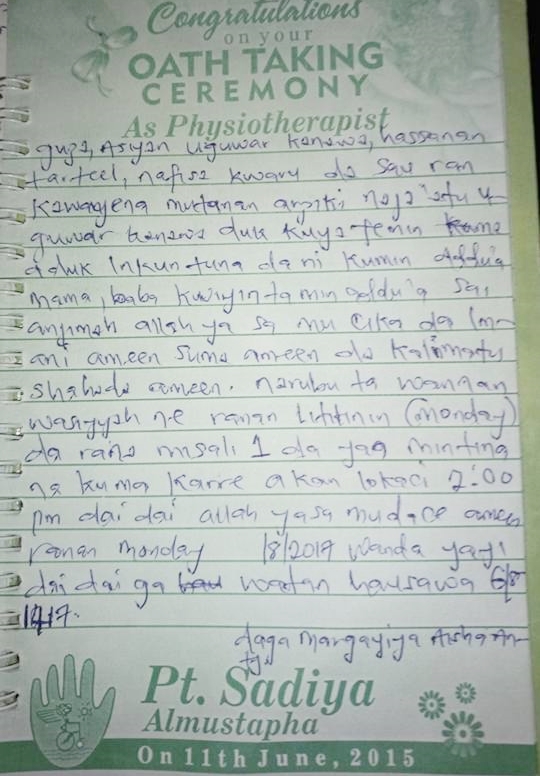 Congratulations
on your
OATH TAKING
CEREMONY
As Physiotherapist
guza, Asiyan uguwar kanawa, hassanan
tarteel, nafisa kwary da sau ran
Kawayena mutanan
guwar kanawa duk kuyafemin kuma
aduk inkun tuna da ni kumin addu'a
mama, baba kuriyinta min addu'a sai
anjimah allah ya sa mu cika da im-
ani ameen suma ameen da kalimatu
shahada ameen. narubu ta wannan
wasiyyah ne ranan litinin (monday)
da rana misali 1 da yan minting
na kuma Karre a kan lokaci 2:00
pm dai dai allah yasa mudace ameen
ranan monday 1/8/2017 wanda yayi
dai dai ga watan hausawa 6/8
1417.
daga margayiya Aisha An-
Pt. Sadiya
Almustapha
On 11th June, 2015